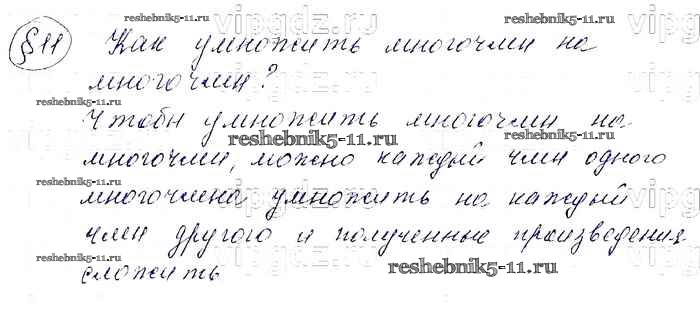 §11 Как умножить многочлен на
многочлен?
Чтобы умножить многочлен на
многочлен, можно каждый член одного
многочлена умножить на каждый
член другого и полученные произведения
сложить
reshebnik5-11.ru
reshebnik5-11.ru
reshebnik5-11.ru
reshebnik5-11.ru
reshebnik5-11.ru
reshebnik5-11.ru
reshebnik5-11.ru
reshebnik5-11.ru
vipgdz.ru